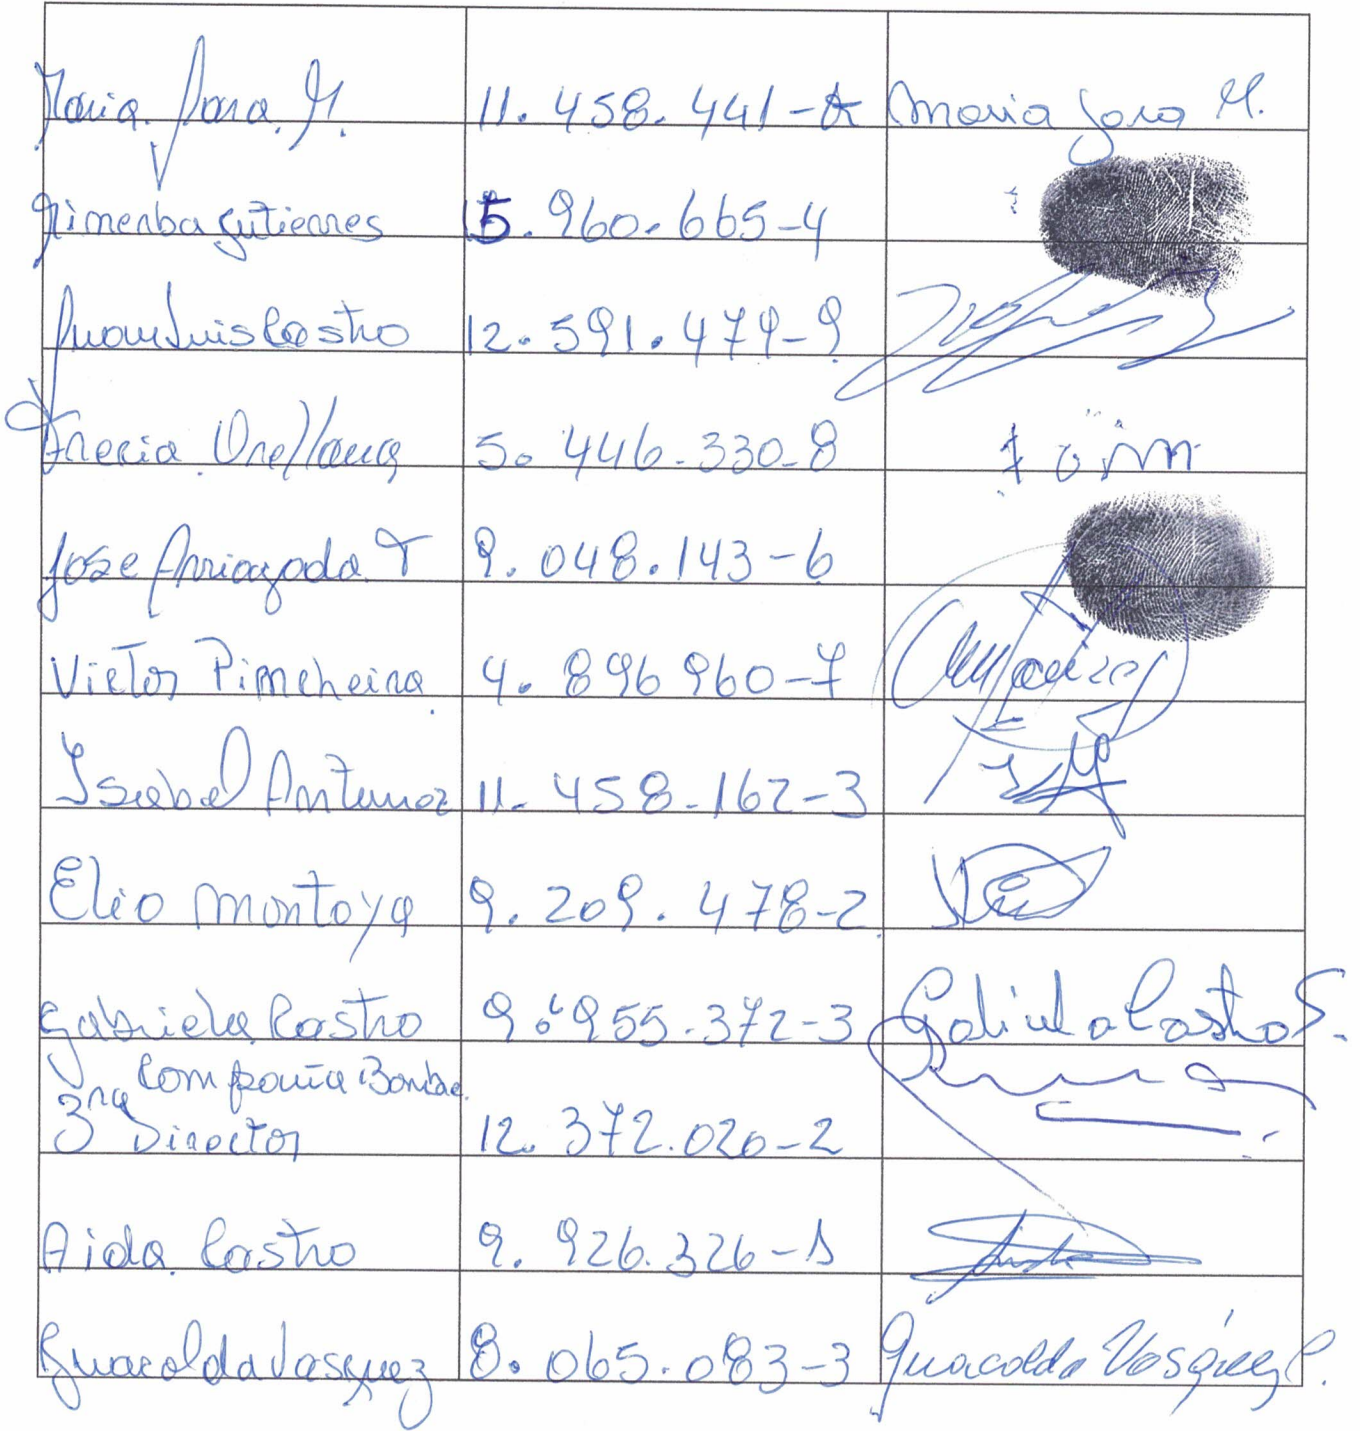 Maria Jara M. 11. 458. 441- Maria Jara M.
Gutierres 5. 960. 665-4
Juan Luis Castro 12. 591. 479-9
Frecia Orellana 5. 446. 330-8
Jose Arriagada T 9. 048. 143-6
Victor Pincheira 4. 896 960-7
Isabel Antunez 11. 458. 162-3
Elio Montoya 9. 209. 478-2
Gabriela Castro 9. 955. 372-3 Gabriela Castro S.
Compañia Bombe.
3ra Director 12. 372. 020-2
Aida Castro 9. 926. 326-1
Guacolda Vasquez 8. 065. 083-3 Guacolda Vasquez C.